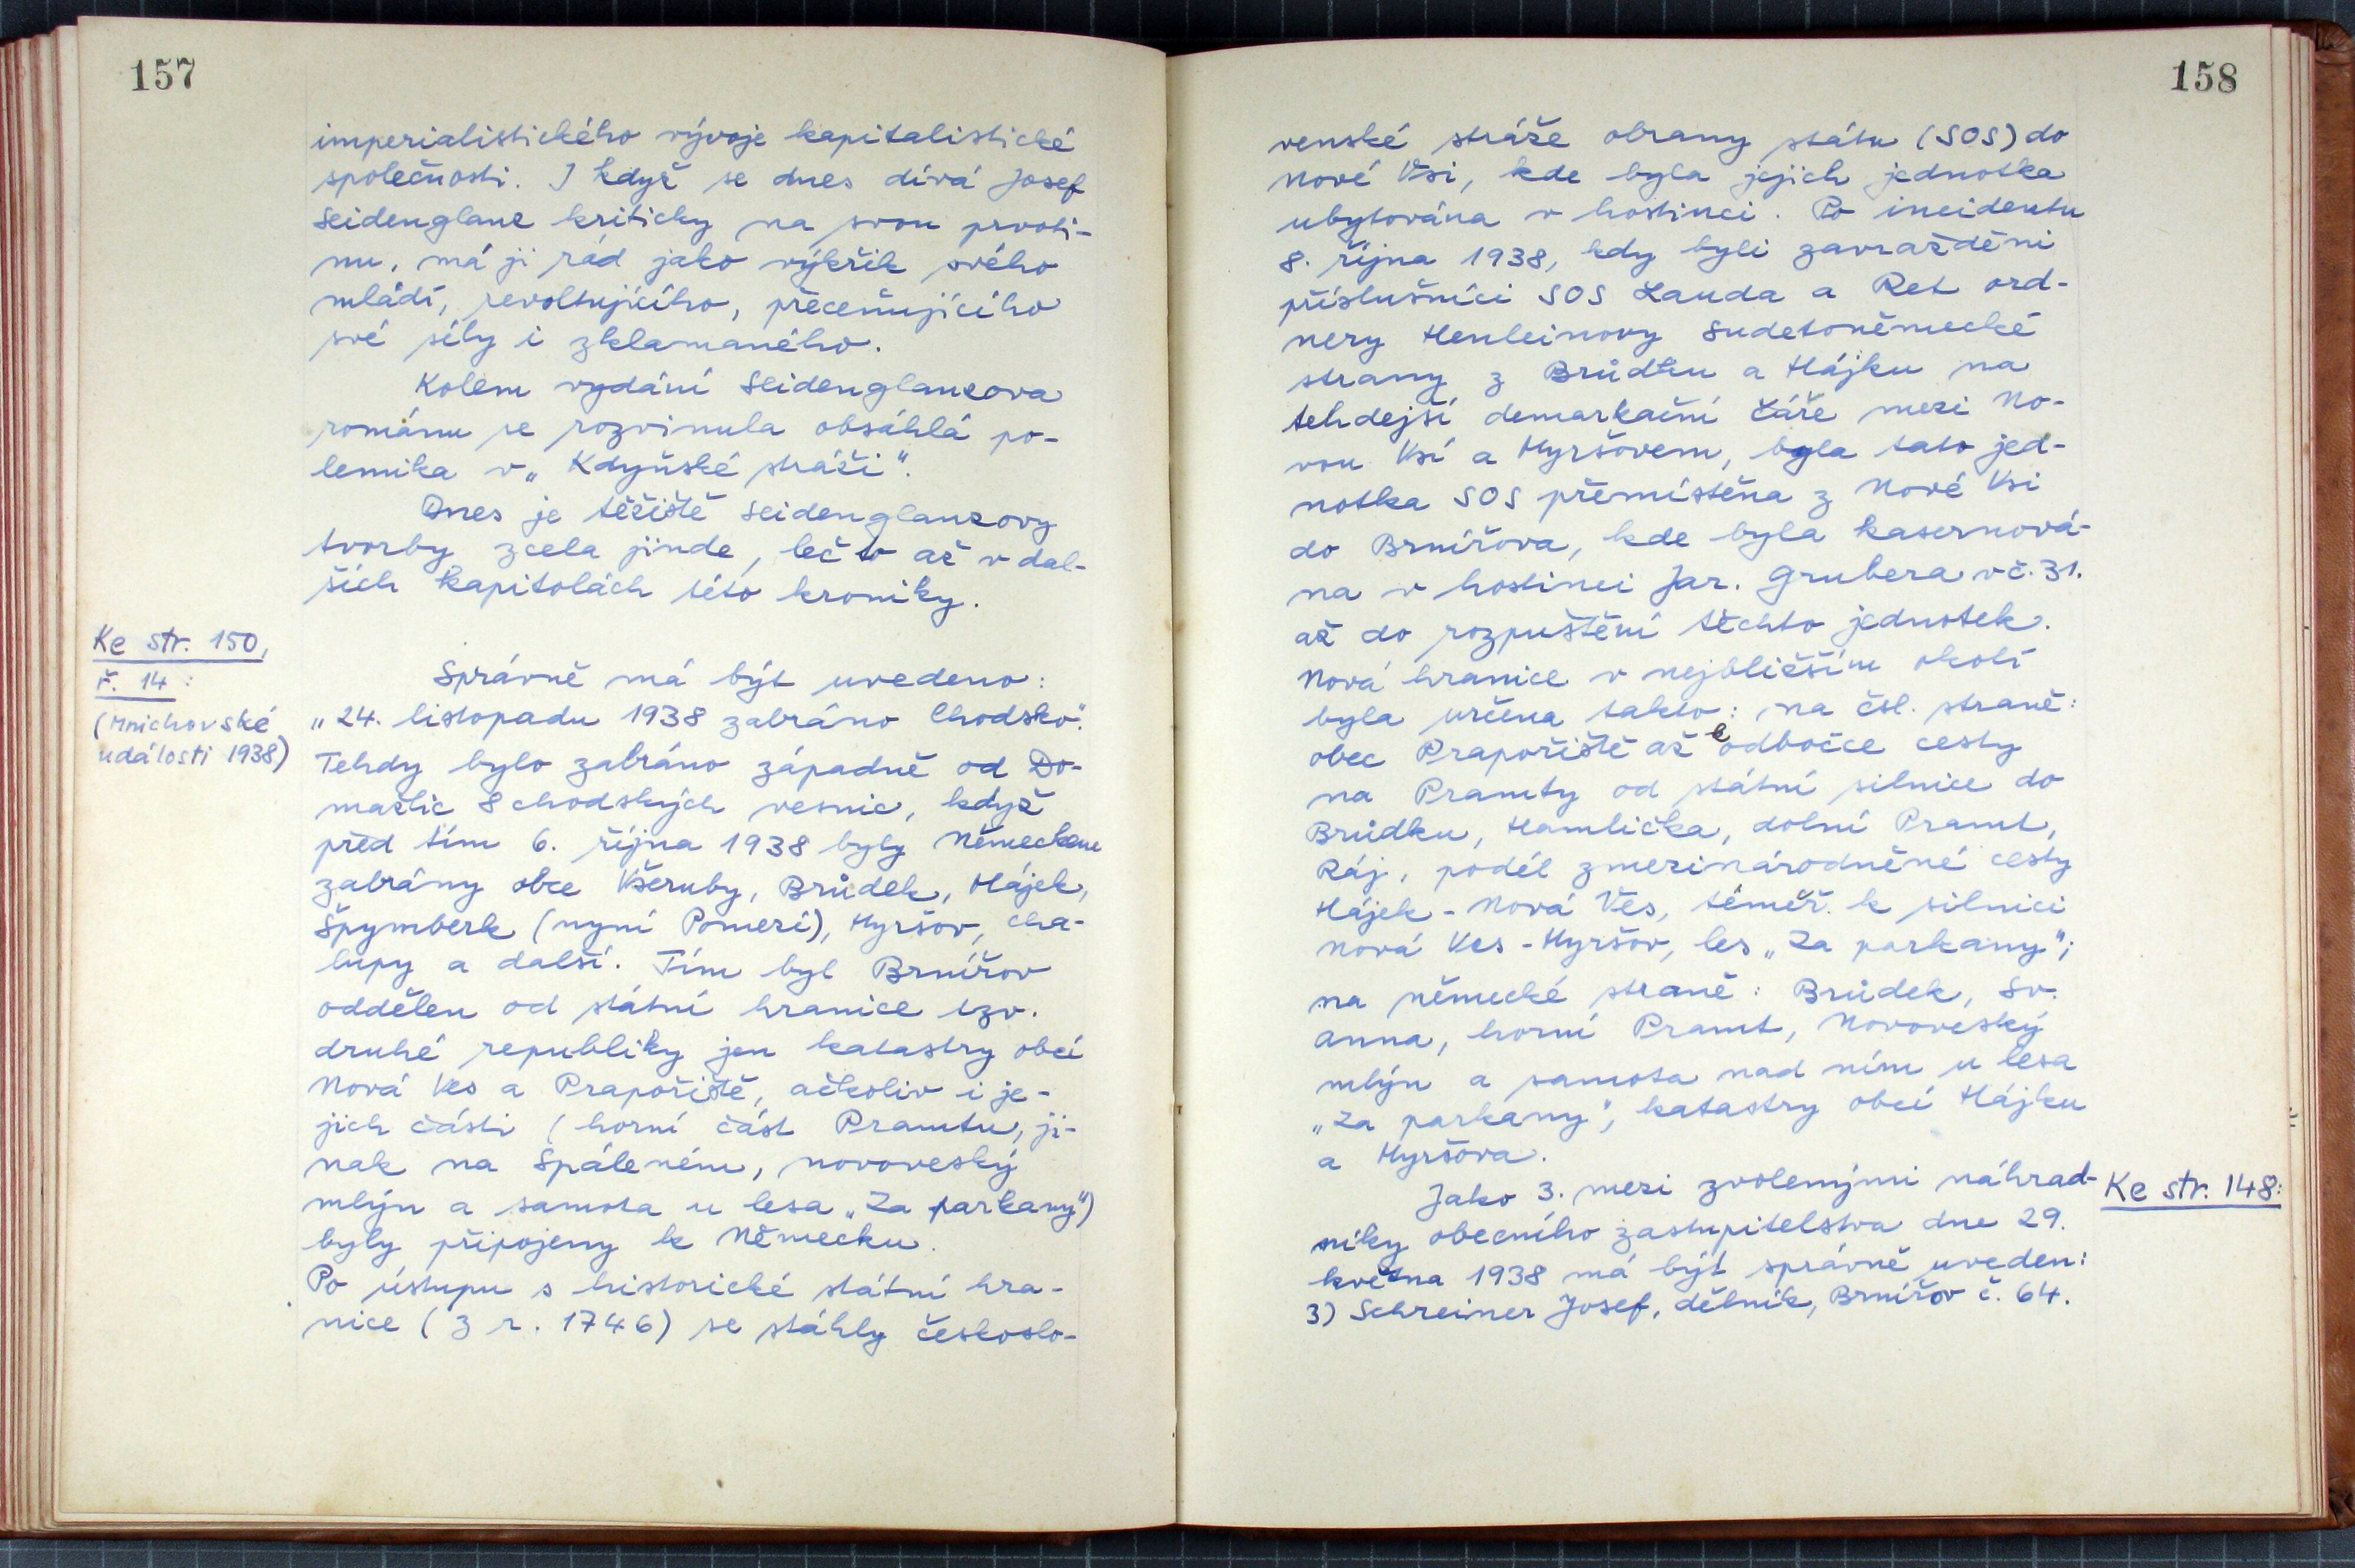 157
imperialistického vývoje kapitalistické
společnosti. I když se dnes dívá Josef
Seidenglanz kriticky na svou prvoti-
nu, má ji rád jako výkřik svého
mládí, revoltujícího, přeceňujícího
své síly i zklamaného.
Kolem vydání Seidenglanzova
románu se rozvinula obsáhlá po-
lemika v „Kdyňské stráži".
Dnes je těžiště Seidenglanzovy
tvorby zcela jinde, leč to až v dal-
ších kapitolách této kroniky.
Ke str. 150,
ř. 14:
(Mnichovské
události 1938)
Správně má být uvedeno:
„24. listopadu 1938 zabráno Chodsko".
Tehdy bylo zabráno západně od Do-
mažlic 8 chodských vesnic, když
před tím 6. října 1938 byly Německem
zabrány obce Všeruby, Brůdek, Hájek,
Špymberk (nyní Pomezí), Hyršov, Cha-
lupy a další. Tím byl Brnířov
oddělen od státní hranice tzv.
druhé republiky jen katastry obcí
Nová Ves a Prapořiště, ačkoliv i je-
jich části (horní část Pramtu, ji-
nak na Spáleném, novoveský
mlýn a samota u lesa „Za parkany")
byly připojeny k Německu.
Po ústupu s historické státní hra-
nice (z r. 1746) se stáhly českoslo-
158
venské stráže obrany státu (SOS) do
Nové Vsi, kde byla jejich jednotka
ubytována v hostinci. Po incidentu
8. října 1938, kdy byli zavražděni
příslušníci SOS Lauda a Ret ord-
nery Henleinovy Sudetoněmecké
strany z Brůdku a Hájku na
tehdejší demarkační čáře mezi No-
vou Vsí a Hyršovem, byla tato jed-
notka SOS přemístěna z Nové Vsi
do Brnířova, kde byla kasernová-
na v hostinci Jar. Grubera v č. 31.
až do rozpuštění těchto jednotek.
Nová hranice v nejbližším okolí
byla určena takto: na čsl. straně:
obec Prapořiště až k odbočce cesty
na Pramty od státní silnice do
Brůdku, Hamlička, dolní Pramt,
Ráj, podél zmezinárodněné cesty
Hájek - Nová Ves, téměř k silnici
Nová Ves - Hyršov, les „Za parkany";
na německé straně: Brůdek, Sv.
Anna, horní Pramt, Novoveský
mlýn a samota nad ním u lesa
„Za parkany", katastry obcí Hájku
a Hyršova.
Ke str. 148:
Jako 3. mezi zvolenými náhrad-
níky obecního zastupitelstva dne 29.
května 1938 má být správně uveden:
3) Schreiner Josef, dělník, Brnířov č. 64.